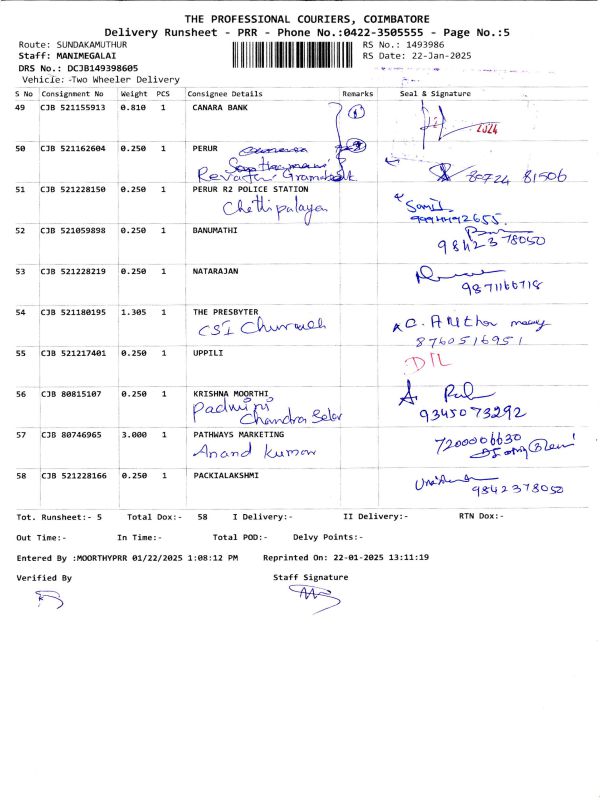 THE PROFESSIONAL COURIERS, COIMBATORE
Delivery Runsheet - PRR - Phone No.:0422-3505555 - Page No.:5
Route: SUNDAKAMUTHUR RS No.: 1493986
Staff: MANIMEGALAI RS Date: 22-Jan-2025
DRS No.: DCJB149398605
Vehicle:-Two Wheeler Delivery
S No Consignment No Weight PCS Consignee Details Remarks Seal & Signature
49 CJB 521155913 0.810 1 CANARA BANK
2024
50 CJB 521162604 0.250 1 PERUR
Revathi
80724 81506
51 CJB 521228150 0.250 1 PERUR R2 POLICE STATION
Chettipalayam
52 CJB 521059898 0.250 1 BANUMATHI
98423 78050
53 CJB 521228219 0.250 1 NATARAJAN
54 CJB 521180195 1.305 1 THE PRESBYTER
CSI
8760516951
55 CJB 521217401 0.250 1 UPPILI
DIL
56 CJB 80815107 0.250 1 KRISHNA MOORTHI
Padmini
Chandra
9345073292
57 CJB 80746965 3.000 1 PATHWAYS MARKETING
Anand Kumar
7200006630
58 CJB 521228166 0.250 1 PACKIALAKSHMI
9842378050
Tot. Runsheet:- 5 Total Dox:- 58 I Delivery:- II Delivery:- RTN Dox:-
Out Time:- In Time:- Total POD:- Delvy Points:-
Entered By :MOORTHYPRR 01/22/2025 1:08:12 PM Reprinted On: 22-01-2025 13:11:19
Verified By Staff Signature